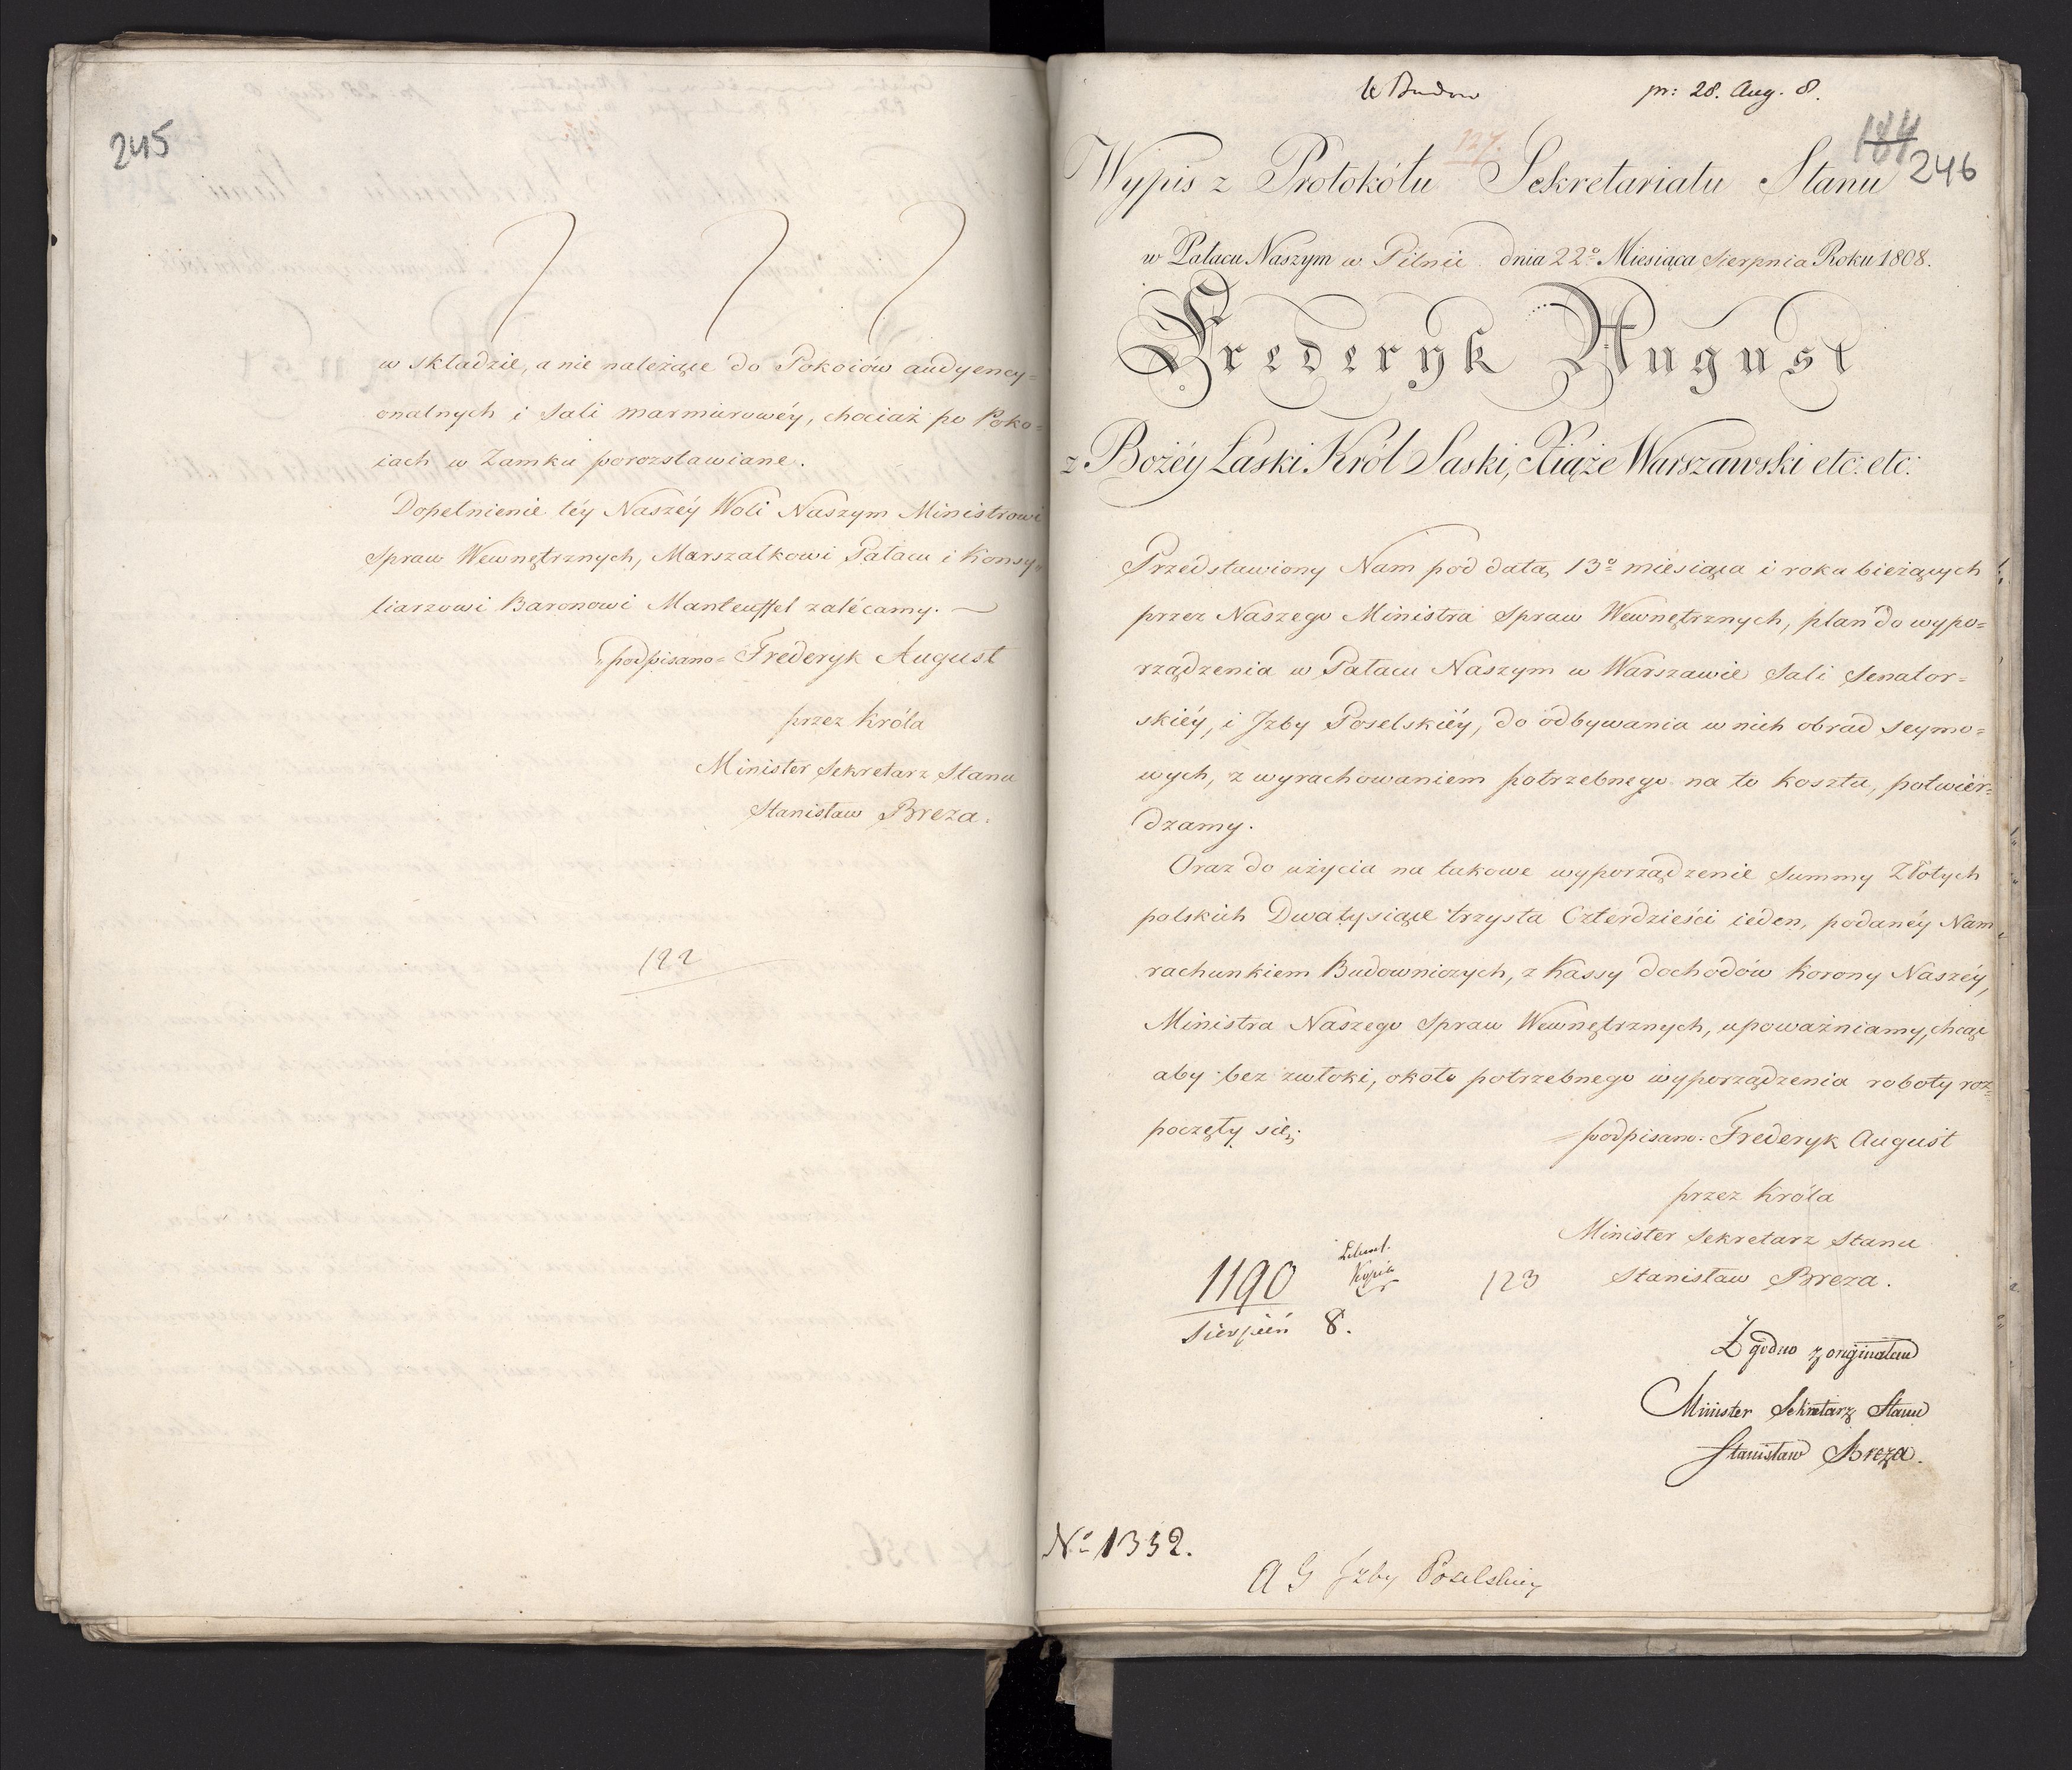 245
w składzie, a nie należące do Pokoiów audyency=
onalnych i Sali marmurowéy, chociaż po Poko=
iach w Zamku porozstawiane.
Dopełnienie téy Naszéy Woli Naszym Ministrowi
Spraw Wewnętrznych, Marszałkowi Pałacu i Konsy=
liarzowi Baronowi Manteuffel zalécamy.
podpisano= Frederyk August
przez Króla
Minister Sekretarz Stanu
Stanisław Breza.
122
pr: 28. Aug. 8.
127.
184
246
Wypis z Protokółu Sekretariatu Stanu
w Pałacu Naszym w Pilnie dnia 22º Miesiąca Sierpnia Roku 1808.
Frederyk August
z Bożéy Łaski Król Saski, Xiąże Warszawski etc: etc:
Przedstawiony Nam pod datą 13º miesiąca i roku bieżących
przez Naszego Ministra Spraw Wewnętrznych, plan do wypo=
rządzenia w Pałacu Naszym w Warszawie Sali Senator=
skiéy, i Jzby Poselskiéy, do odbywania w nich obrad seymo=
wych, z wyrachowaniem potrzebnego na to kosztu, potwier=
dzamy.
Oraz do użycia na takowe wyporządzenie Summy Złotych
polskich Dwatysiące trzysta Czterdzieści ieden, podanéy Nam
rachunkiem Budowniczych, z Kassy dochodów Korony Naszéy,
Ministra Naszego Spraw Wewnętrznych, upoważniamy, chcąc
aby bez zwłoki, około potrzebnego wyporządzenia roboty roz=
poczęły się.
podpisano: Frederyk August
przez Króla
Minister Sekretarz Stanu
Stanisław Breza.
1190
Kopia
123
Sierpień 8.
Zgodno z originałem
Minister Sekretarz Stanu
Stanisław Breza.
Nº 1352.
A G Jzby Poselskiey